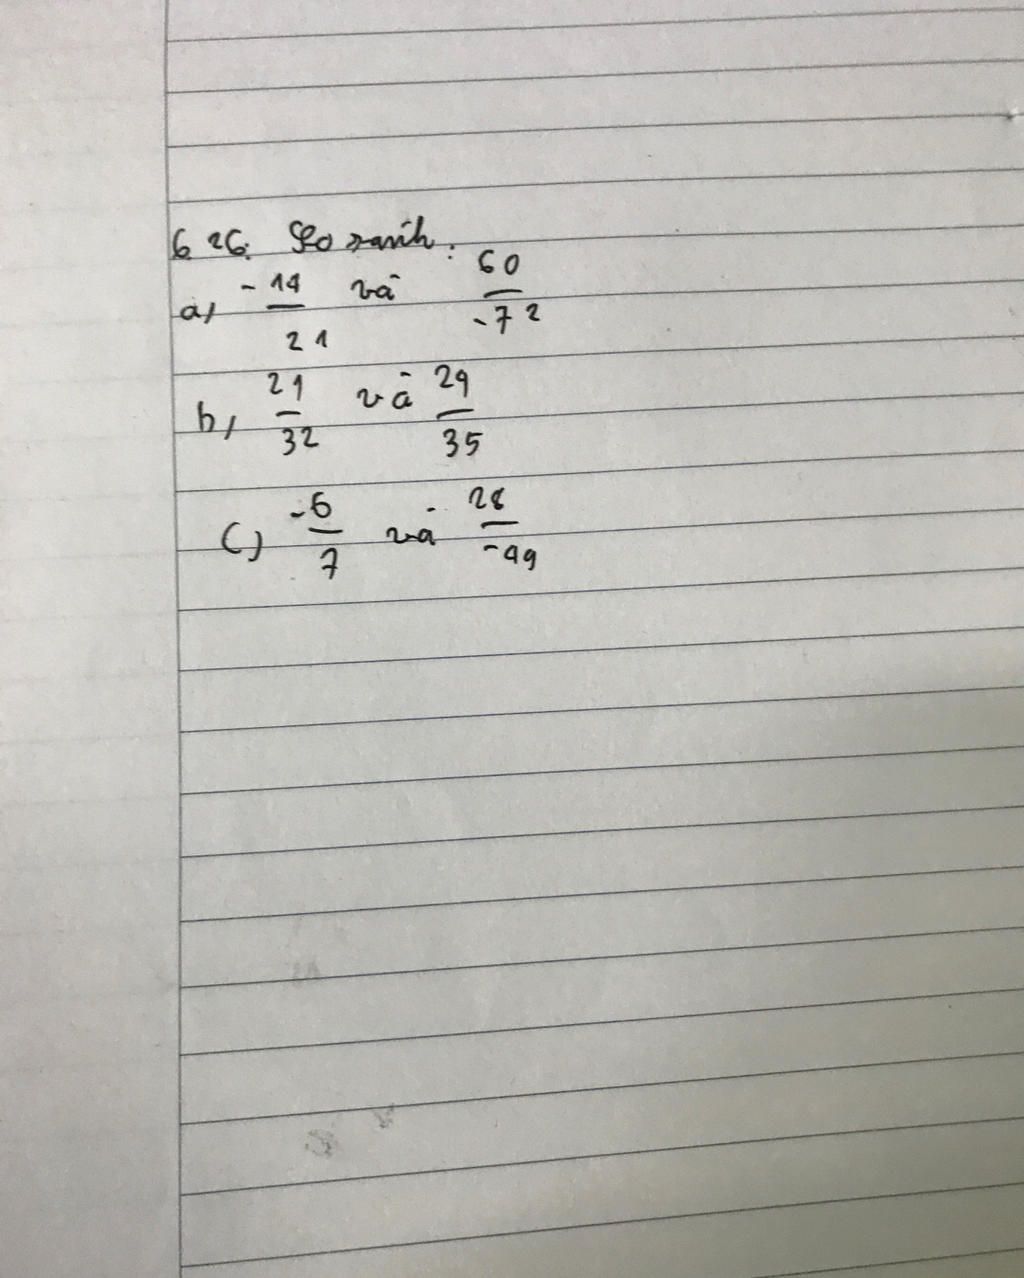 6.26. So sánh:
a, -14/21 và 60/-72
b, 21/32 và 29/35
c) -6/7 và 28/-49